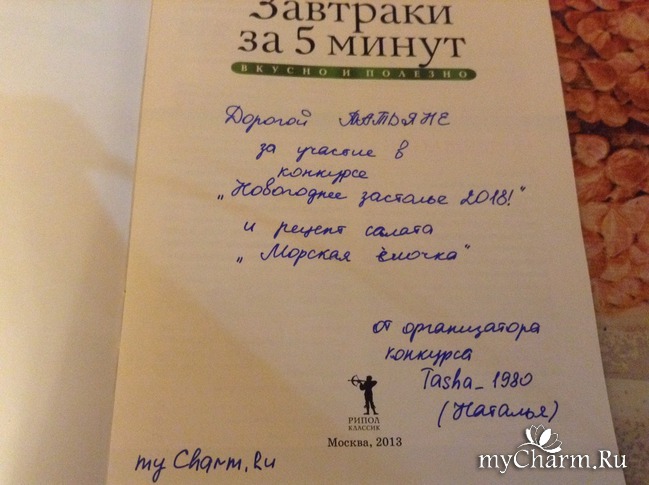 Завтраки
за 5 минут
ВКУСНО И ПОЛЕЗНО
Дорогой ТАТЬЯНЕ
за участие в
конкурсе
„Новогоднее застолье 2018!"
и рецепт салата
„Морская ёлочка"
от организатора
конкурса
Tasha_1980
(Наталья)
РИПОЛ
КЛАССИК
Москва, 2013
myCharm.Ru
myCharm.Ru